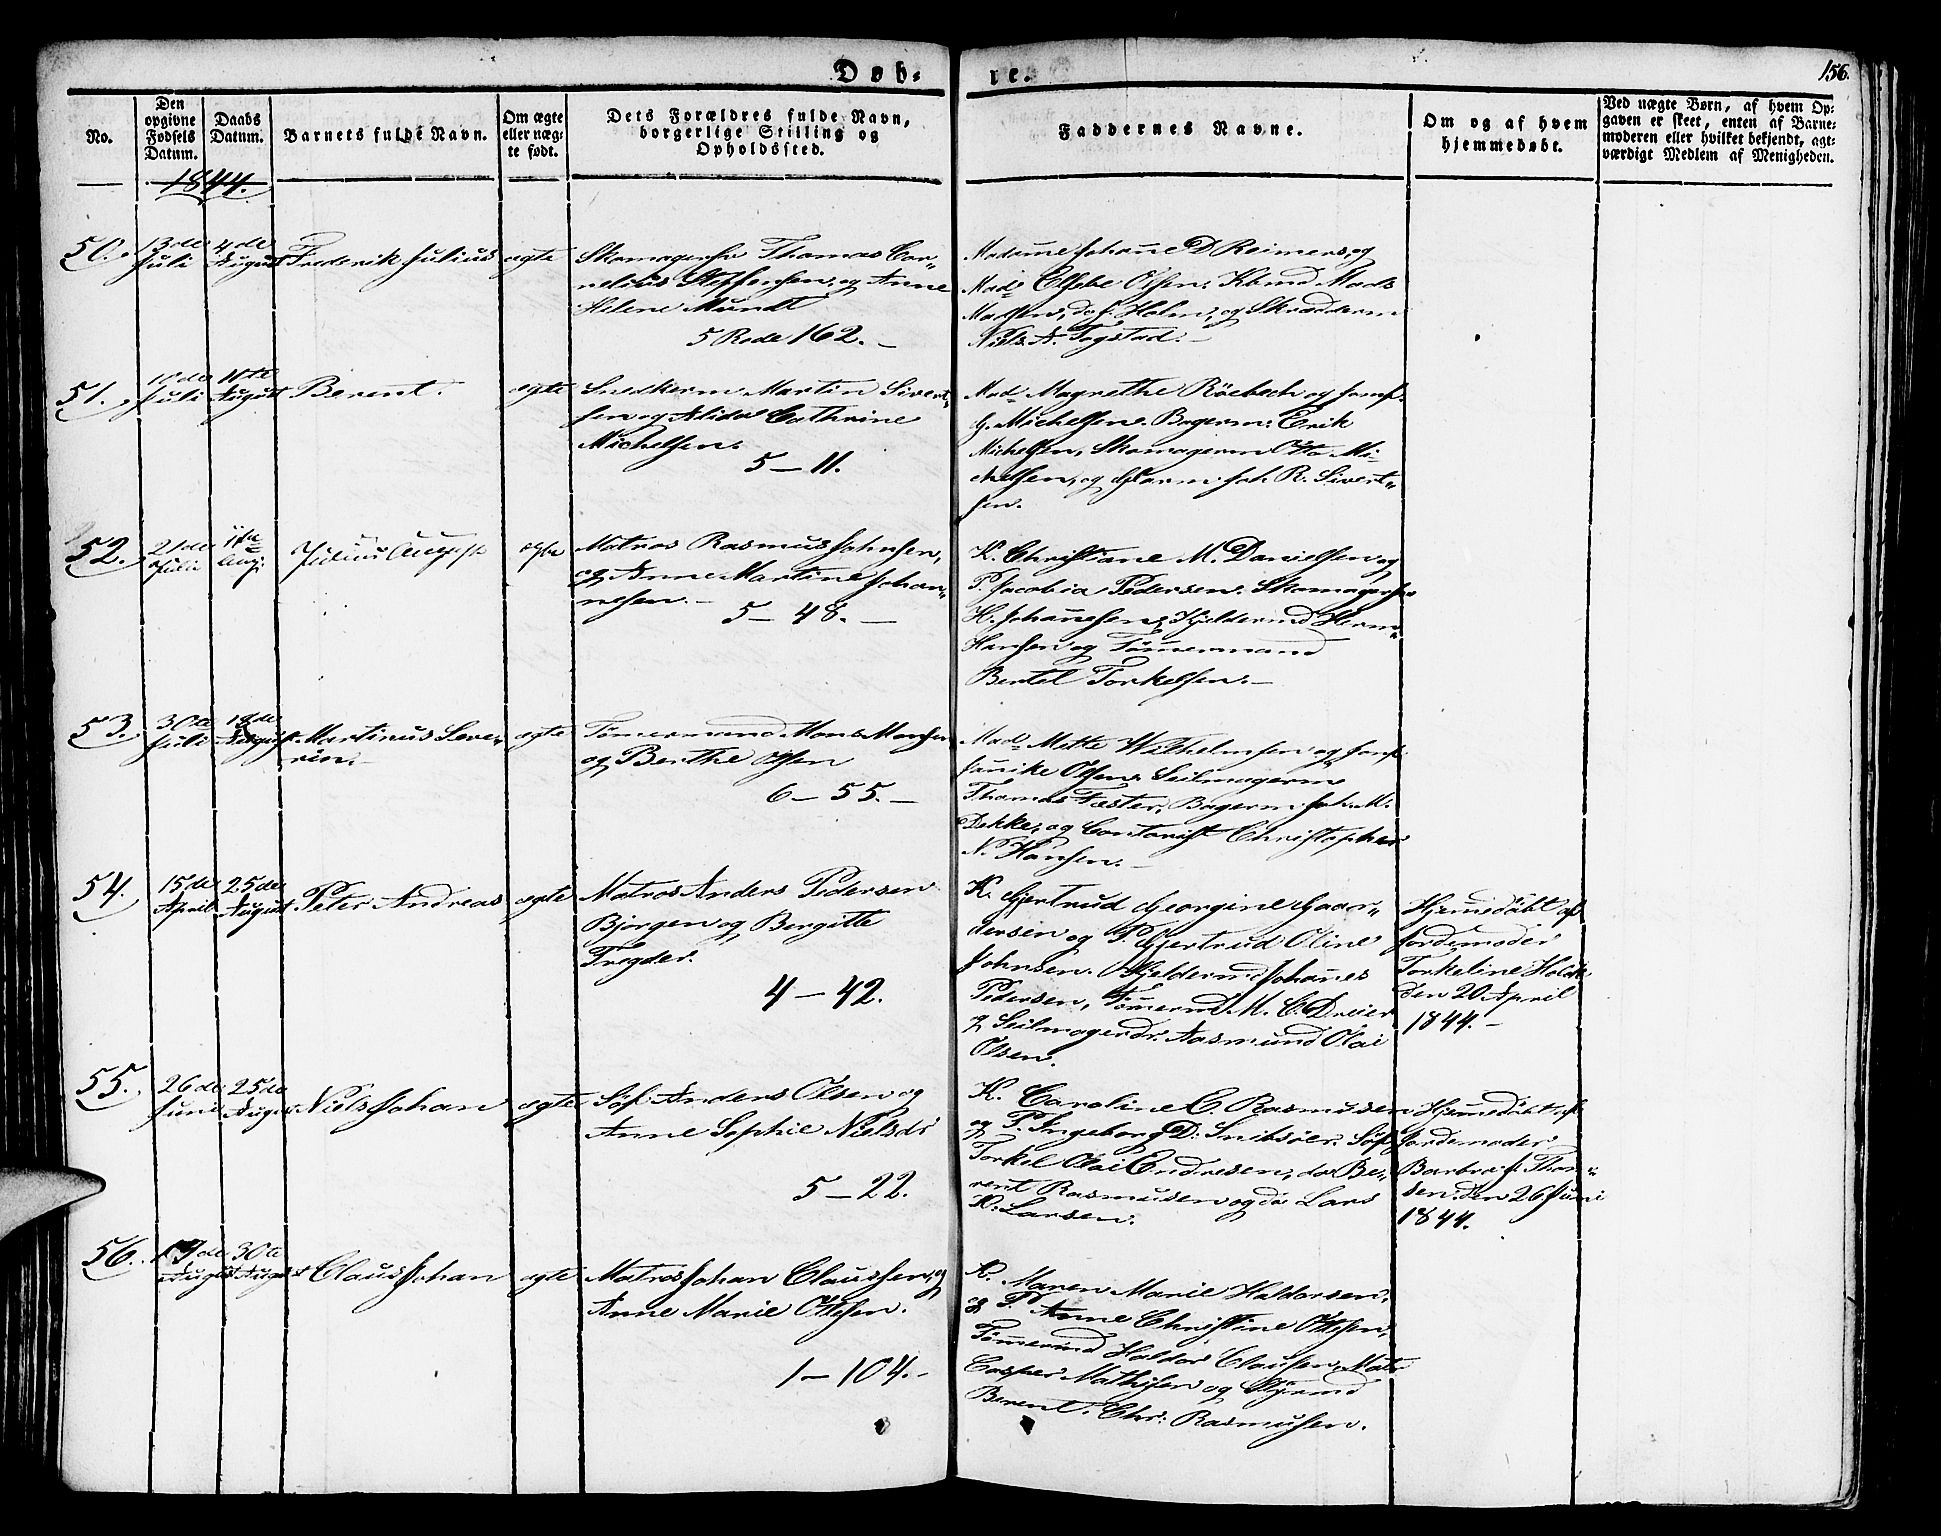 Døb-
te.
156.
No.
Den
opgivne
Fødsels
Datum.
Daabs
Datum.
Barnets fulde Navn.
Om ægte
eller næg-
te født.
Dets Forældres fulde Navn,
borgerlige Stilling og
Opholdssted.
Faddernes Navne.
Om og af hvem
hjemmedøbt.
Ved nægte Børn, af hvem Op-
gaven er skeet, enten af Barne-
moderen eller hvilket bekjendt, agt-
værdigt Medlem af Menigheden.
1844.
50.
13de
Juli
4de
August
Frederik Julius
ægte
Skomagersv Thomas Cor-
nelius Steffensen, og Anne
Helene Mundt
5 Rode 162.
Madame Johanne D Reimers, og
Mad. Elsebe Olsen, Kbmd Mads
Madsen, do J. Holm, og Skrædderm
Niels A. Fogstad.
51.
Juli
11te
August
Berent.
ægte
Snedkerm Martin Sivert-
sen og Alida Cathrine
Michelsen.
5 - 11.
Mad. Magrethe Röebech og Jomf.
G. Michelsen. Bagerm: Erik
Michelsen, Skomagerm Otto Mi-
chelsen, og Joh. R. Sivert-
sen.
52.
21de
Juli
11te
Aug:
Julius August
ægte
Matros Rasmus Johnsen,
og Anne Martine Johan-
nesen.
5 - 48.
K. Christiane M. Danielsen og
P. Jacobia Pedersen. Skomagersv
H. Johannesen, Kjeldermd Herm
Hansen og Tömmermand
Bertel Torkelsen.
53.
30te
Juli
18de
August
Martinus Seve-
rin.
ægte
Tömmermand Mons Monsen
og Berthe Olsen
6 - 55.
Mad. Mette Wilhelmsen og Jomf.
Jannike Olsen. Seilmagerm
Thomas Fæster, Bagerm. Joh. M.
Dekke, og Contorist Christopher
N. Hansen.
54.
15de
April
25de
August
Peter Andreas
ægte
Matros Anders Pedersen
Bjørgen og Bergitte
Fregder.
4 - 42.
K. Gjertrud Georgine Gaar-
dersen og P. Gjertrud Oline
Johnsen. Kjeldermd Johannes
Pedersen, Tömermd M. C. Dreier
og Seilmagerdr. Aasmund Olai
Olsen.
Hjemedöbt af
Jordemoder
Torkeline Holdt
den 20 April
1844.
55.
26de
Juni
25de
August
Niels Johan
ægte
Søf. Anders Olsen og
Anne Sophie Nielsdr
5 - 22.
K. Caroline C. Rasmussen
og P. Ingeborg D. Snibsöer. Søf
Torkel Olai Endresen, do Be-
rent Rasmusen og do Lars
K. Larsen.
Hjemmedöbt af
Jordemoder
Barbra J. Thom-
sen den 26 Juni
1844.
56.
August
30te
August
Claus Johan
ægte
Matros Johan Claussen, og
Anne Marie Ottesen.
1 - 104.
K. Maren Marie Haldorsen,
og P. Anne Christine Ottesen,
Tömermd Haldor Clausen, Matr
Casper Mathisen og
Berent Chr: Rasmussen.